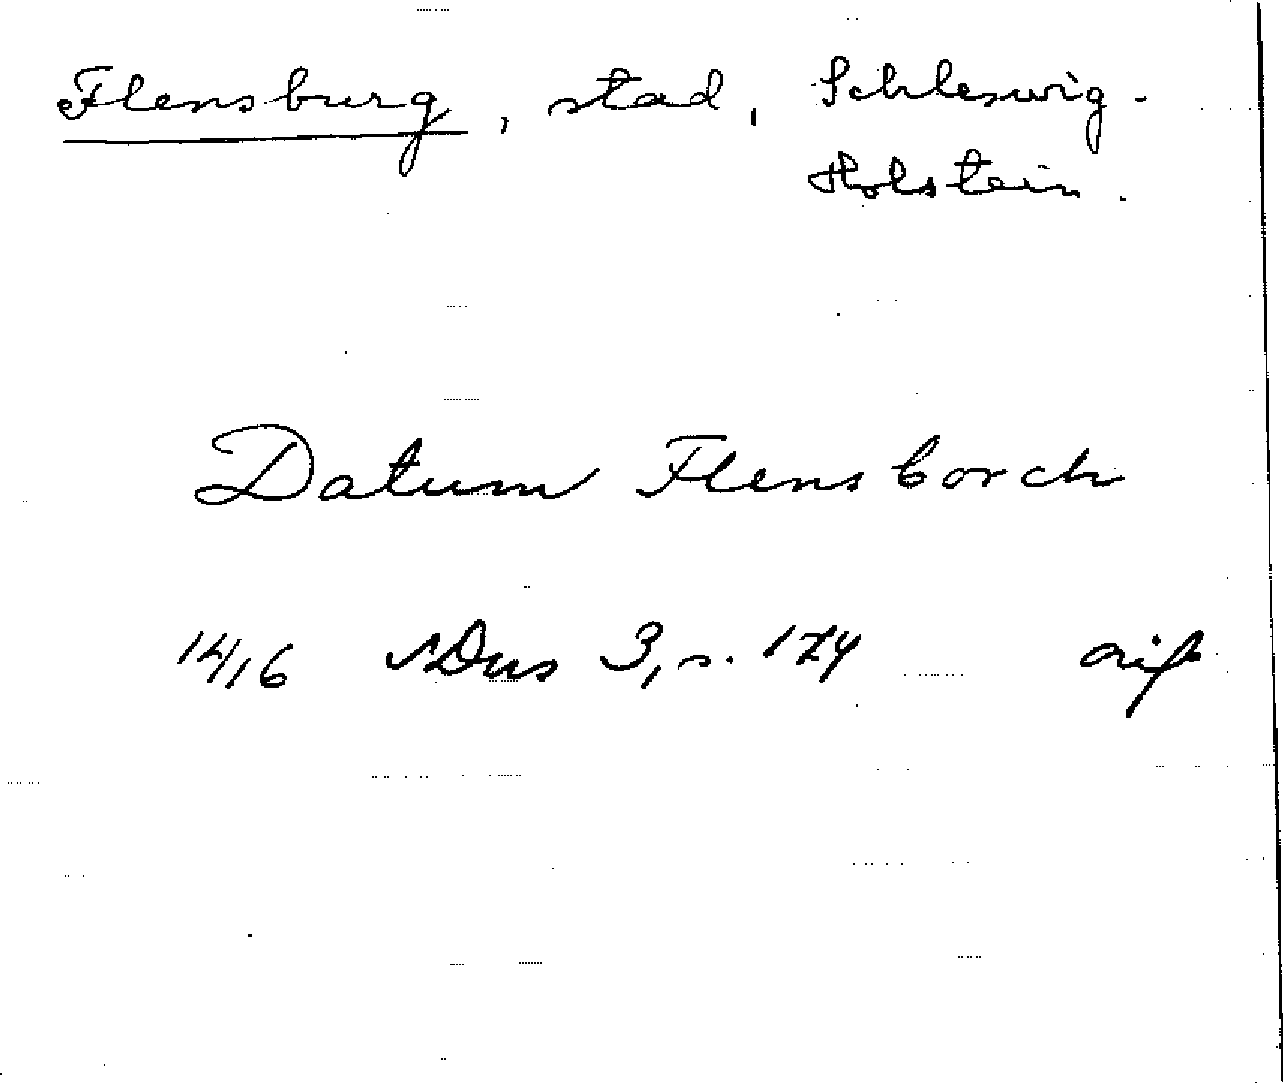 Flensburg, stad, Schleswig-
Holstein.
Datum Flensborch
14/16 SDns 3, s. 174 avskr